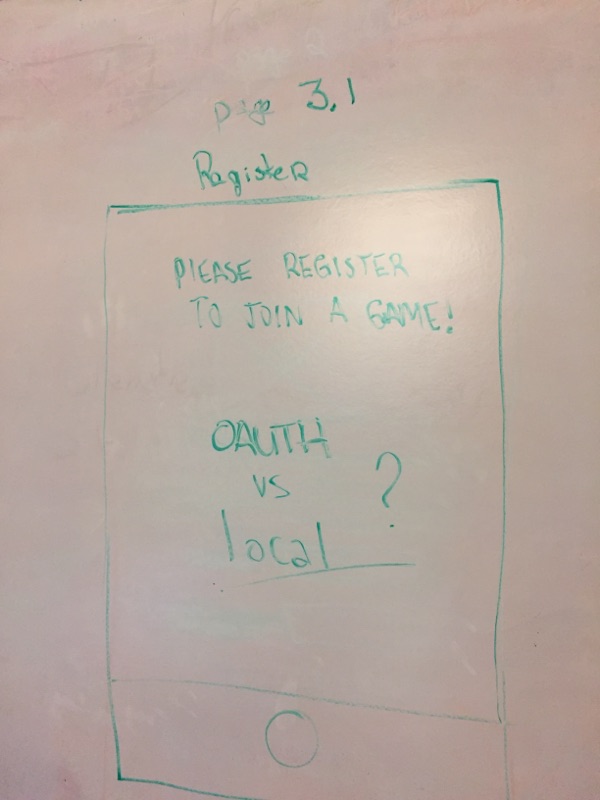 page 3.1
Register
PLEASE REGISTER
TO JOIN A GAME!
OAUTH
vs ?
local